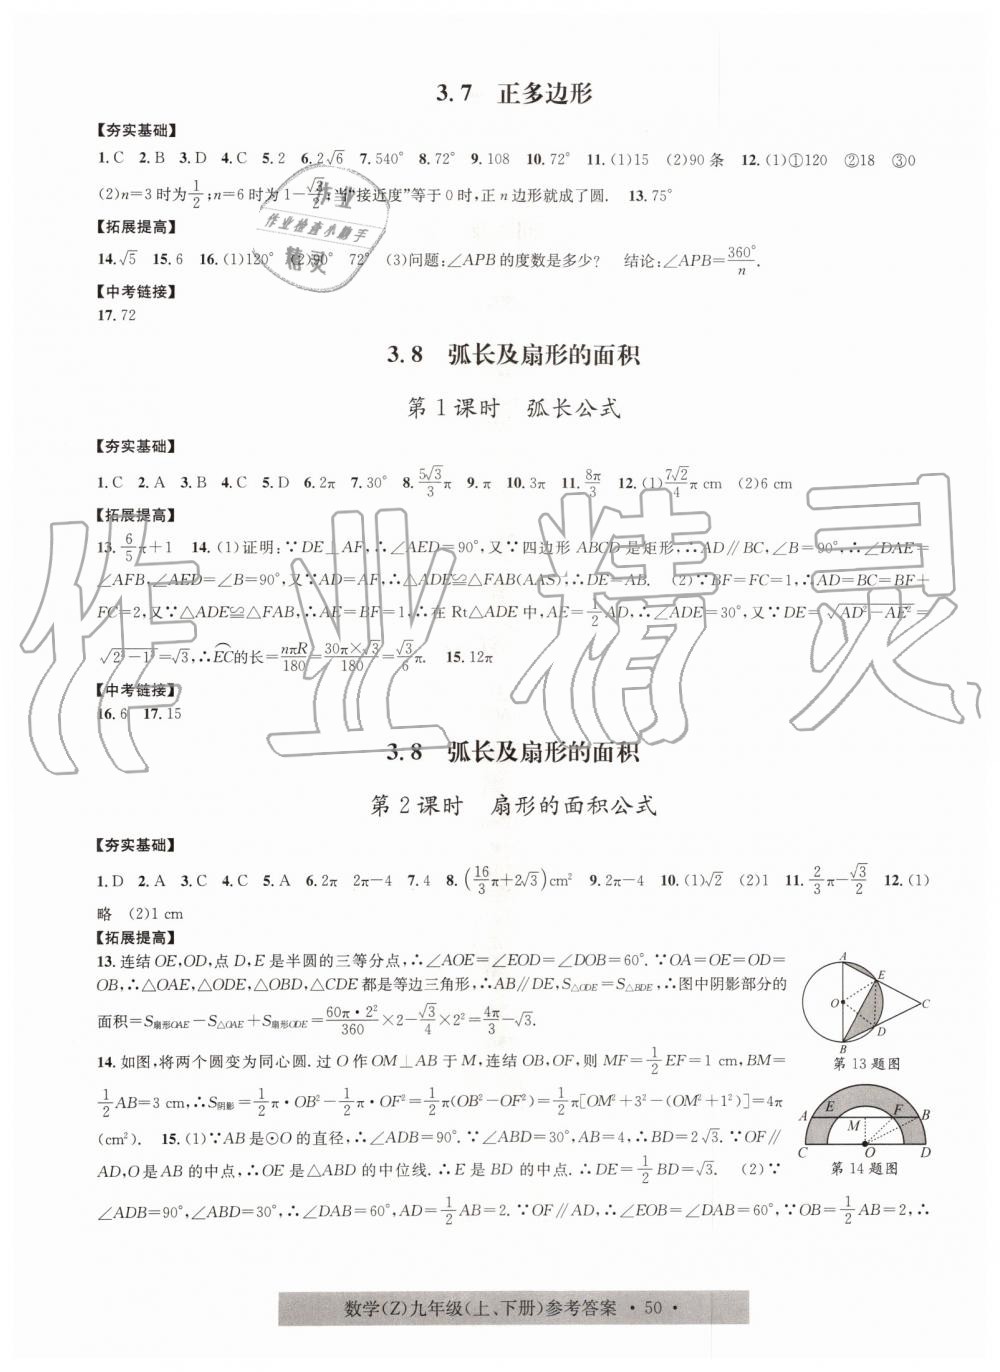 3.7　正多边形
【夯实基础】
1.C　2.B　3.D　4.C　5.2　6.2√6　7.540°　8.72°　9.108　10.72°　11.(1)15　(2)90 条　12.(1)①120　②18　③0
(2)n=3时为1/2;n=6时为1-√3/2;当“接近度”等于0时,正n边形就成了圆.　13.75°
【拓展提高】
14.√5　15.6　16.(1)120°　(2)90°　72°　(3)问题:∠APB的度数是多少?　结论:∠APB=360°/n.
【中考链接】
17.72
3.8　弧长及扇形的面积
第1课时　弧长公式
【夯实基础】
1.C　2.A　3.B　4.C　5.D　6.2π　7.30°　8.5√3/3π　9.π　10.3π　11.8π/3　12.(1)7√2/4π cm　(2)6 cm
【拓展提高】
13.6/5π+1　14.(1)证明:∵DE⊥AF,∴∠AED=90°,又∵四边形ABCD是矩形,∴AD∥BC,∠B=90°,∴∠DAE=
∠AFB,∠AED=∠B=90°,又∵AD=AF,∴△ADE≌△FAB(AAS),∴DE=AB.　(2)∵BF=FC=1,∴AD=BC=BF+
FC=2,又∵△ADE≌△FAB,∴AE=BF=1,∴在Rt△ADE中,AE=1/2AD,∴∠ADE=30°,又∵DE=√(AD²-AE²)=
√(2²-1²)=√3,∴EC⌒的长=nπR/180=30π×√3/180=√3/6π.　15.12π
【中考链接】
16.6　17.15
3.8　弧长及扇形的面积
第2课时　扇形的面积公式
【夯实基础】
1.D　2.A　3.C　4.C　5.A　6.2π　2π-4　7.4　8.(16/3π+2√3)cm²　9.2π-4　10.(1)√2　(2)1　11.2/3π-√3/2　12.(1)
略　(2)1 cm
【拓展提高】
13.连结OE,OD,点D,E是半圆的三等分点,∴∠AOE=∠EOD=∠DOB=60°.∵OA=OE=OD=
OB,∴△OAE,△ODE,△OBD,△CDE都是等边三角形,∴AB∥DE,S△ODE=S△BDE,∴图中阴影部分的
面积=S扇形OAE-S△OAE+S扇形ODE=60π·2²/360×2-√3/4×2²=4π/3-√3.
A
E
O
C
D
B
第13题图
14.如图,将两个圆变为同心圆.过O作OM⊥AB于M,连结OB,OF,则MF=1/2EF=1 cm,BM=
1/2AB=3 cm,∴S阴影=1/2π·OB²-1/2π·OF²=1/2π(OB²-OF²)=1/2π[OM²+3²-(OM²+1²)]=4π
(cm²).　15.(1)∵AB是⊙O的直径,∴∠ADB=90°.∵∠ABD=30°,AB=4,∴BD=2√3.∵OF∥
AD,O是AB的中点,∴OE是△ABD的中位线.∴E是BD的中点.∴DE=1/2BD=√3.　(2)∵
A
E
F
B
M
C
O
D
第14题图
∠ADB=90°,∠ABD=30°,∴∠DAB=60°,AD=1/2AB=2.∵OF∥AD,∴∠EOB=∠DAB=60°,∵OB=1/2AB=2,∴
数学(Z)九年级(上、下册)参考答案 · 50 ·
作业
作业检查小助手
精灵
作业精灵